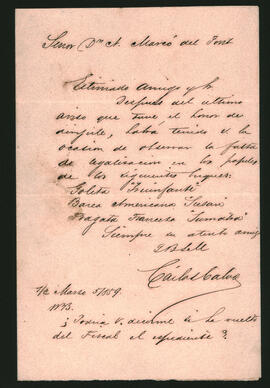 Señor Dn A. Marcó del Pont
Estimado Amigo y Sr
Despues del ultimo
aviso que tuve el honor de
dirijirle, habrá tenido V. la
ocasion de observar la falta
de legalizacion en los papeles
de los siguientes buques:
Goleta "Triunfante"
Barca Americana "Susan"
Fragata Francesa
Siempre su atento amigo
QBSM
Carlos Calvo
S/c Marzo 5/859.
NB.
¿Podria V. decirme si ha vuelto
del Fiscal el espediente?